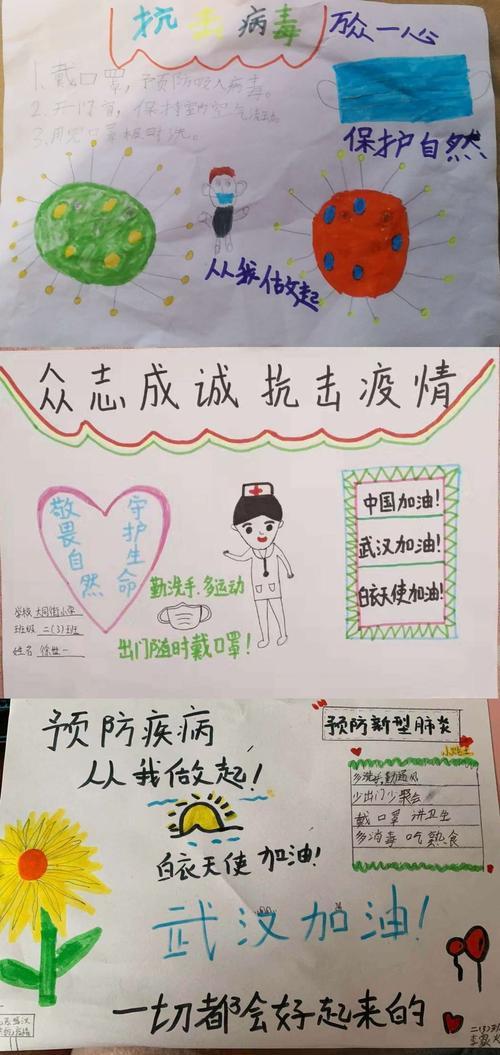 抗击病毒
万众一心
1.戴口罩,预防吸入病毒。
2.开门窗,保持室内空气流动。
3.用完口罩
保护自然
从我做起
众志成诚 抗击疫情
敬畏自然
守护生命
中国加油!
武汉加油!
白衣天使加油!
勤洗手.多运动
出门随时戴口罩!
学校 大同街小学
班级 二(3)班
姓名 徐世一
预防疾病
从我做起!
预防新型肺炎
小贴士
多洗手勤通风
少出门少聚会
戴口罩 讲卫生
多消毒 吃熟食
白衣天使 加油!
武汉加油!
一切都会好起来的
二(3)班